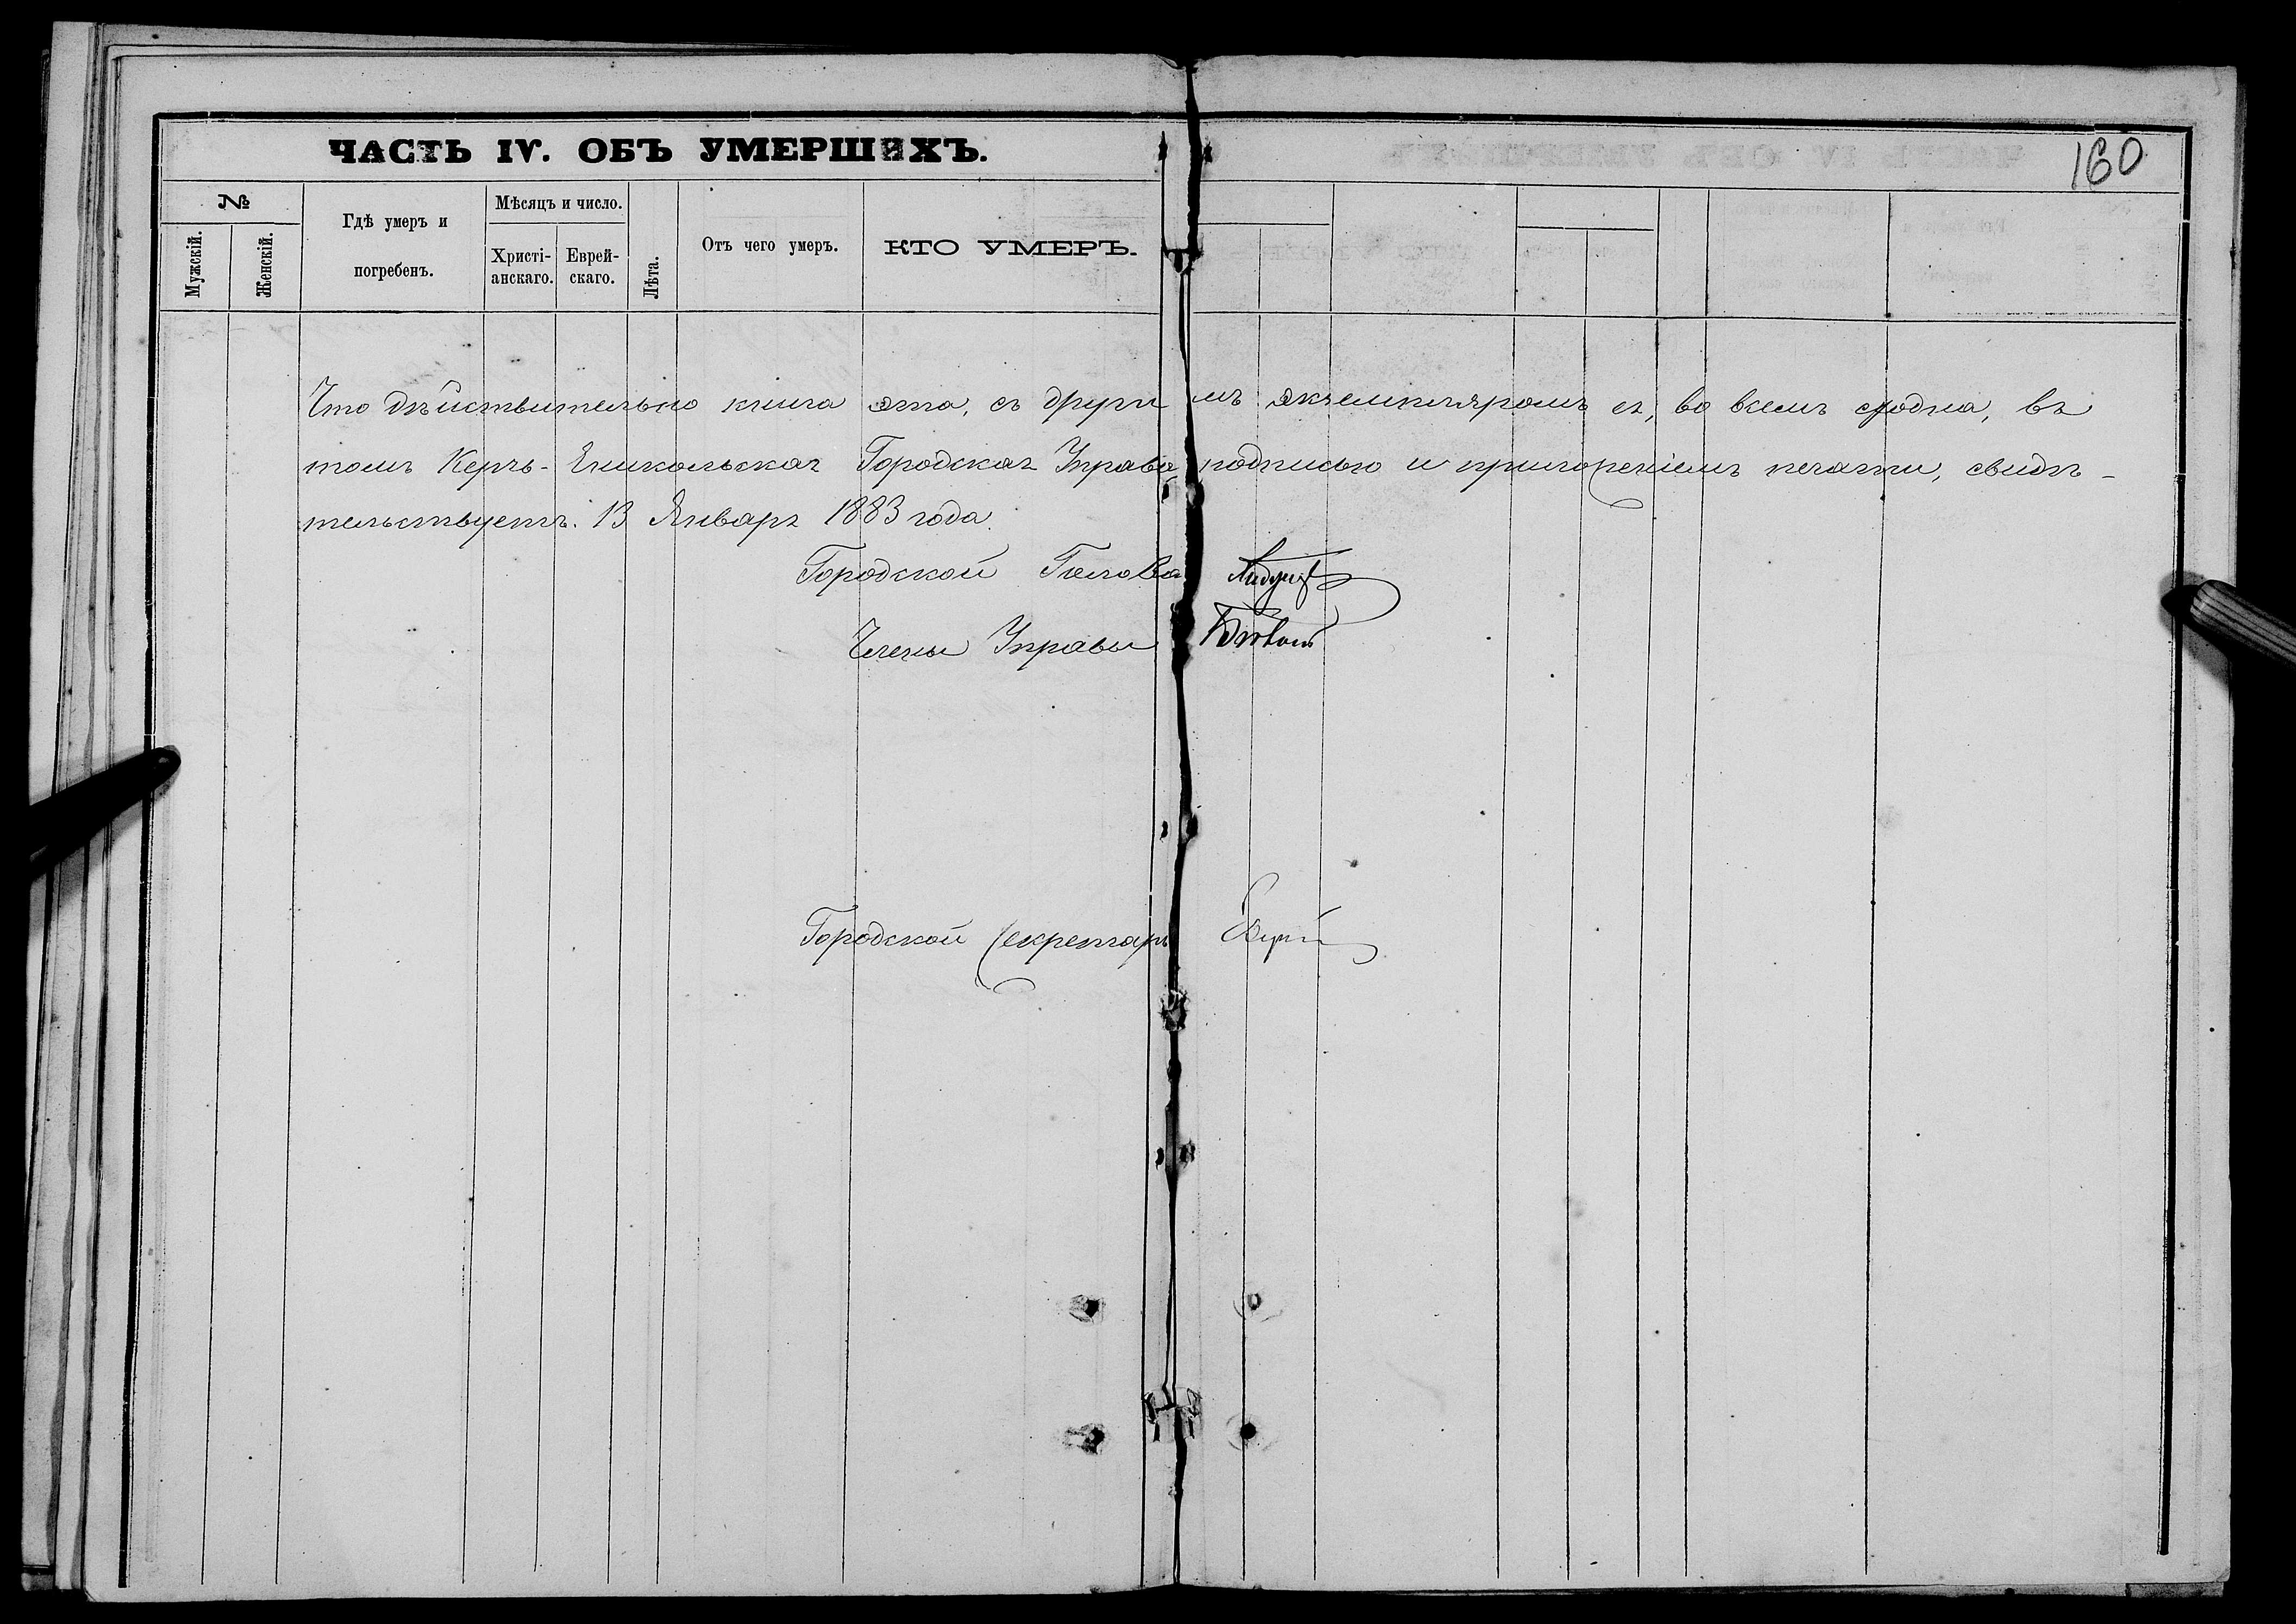 ЧАСТЬ IV. ОБЪ УМЕРШИХЪ.
160
№
Мужскій.
Женскій.
Гдѣ умеръ и
погребенъ.
Мѣсяцъ и число.
Христі-
анскаго.
Еврей-
скаго.
Лѣта.
Отъ чего умеръ.
КТО УМЕРЪ.
Что дѣйствительно книга эта, съ другимъ экземпляромъ ея, во всемъ сходна, въ
томъ Керчь-Еникольская Городская Управа подписью и приложеніемъ печати, свидѣ-
тельствуетъ. 13 Января 1883 года.
Городской Голова
Члены Управы
Городской Секретарь